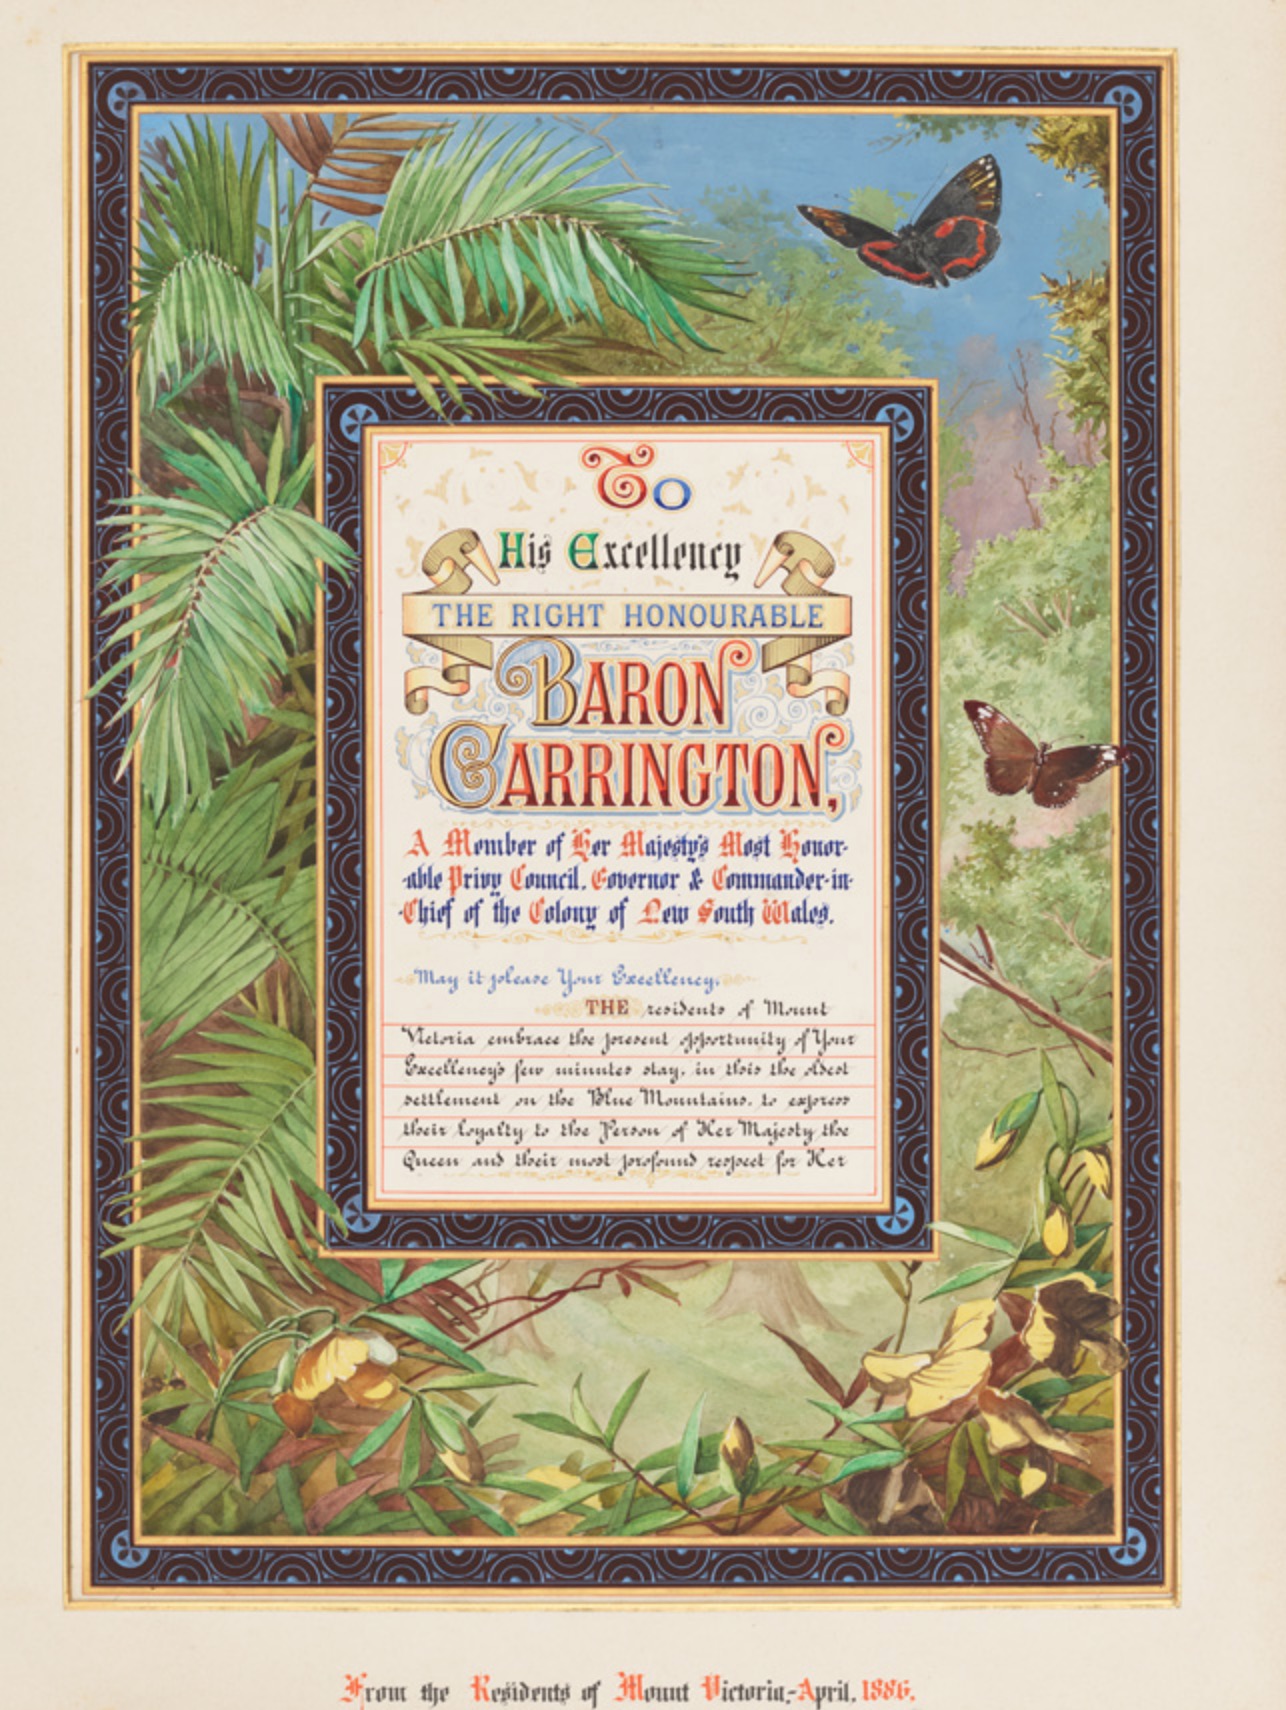 To
His Excellency
THE RIGHT HONOURABLE
BARON
CARRINGTON,
A Member of Her Majesty's Most Honor-
-able Privy Council, Governor & Commander-in-
-Chief of the Colony of New South Wales.
May it please Your Excellency,
THE residents of Mount
Victoria embrace the present opportunity of Your
Excellency's few minutes stay, in this the oldest
settlement on the Blue Mountains, to express
their loyalty to the Person of Her Majesty the
Queen and their most profound respect for Her
From the Residents of Mount Victoria,-April, 1886.